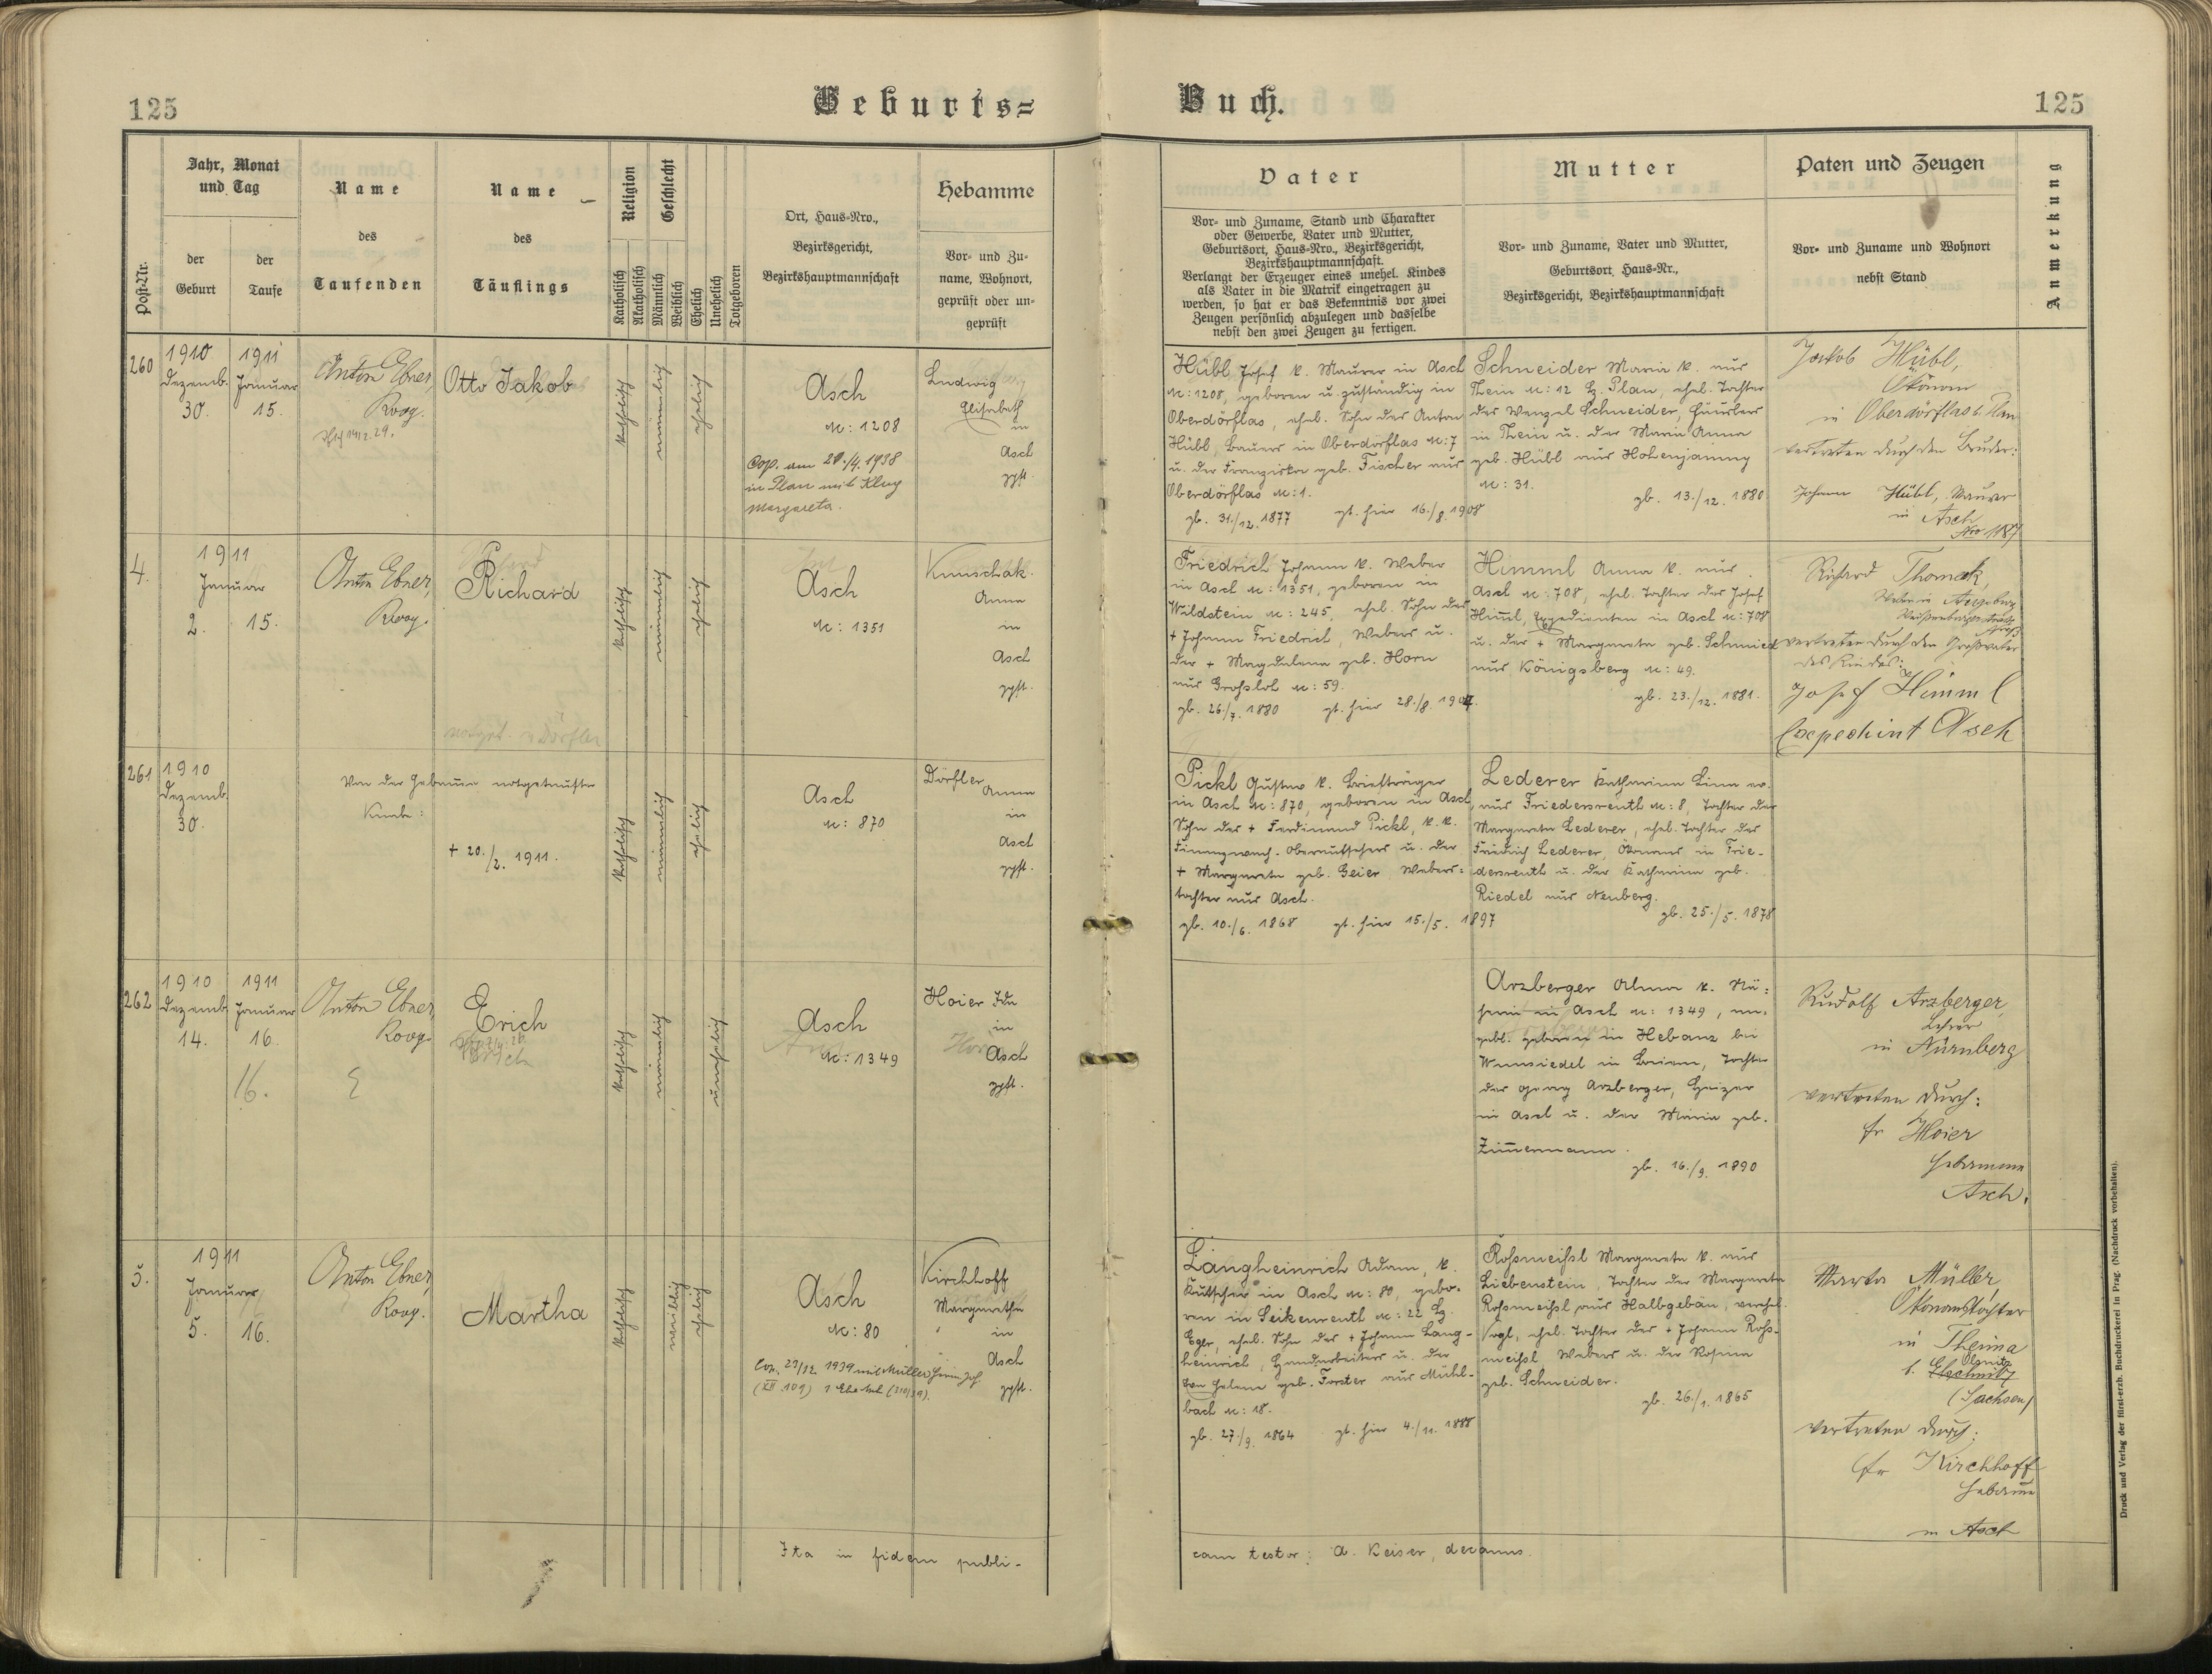 125
Geburts=
Buch.
125
Post-Nr.
Jahr, Monat
und Tag
der
Geburt
der
Taufe
Name
des
Taufenden
Name
des
Täuflings
Religion
Katholisch
Akatholisch
Geschlecht
Männlich
Weiblich
Ehelich
Unehelich
Totgeboren
Ort, Haus-Nro.,
Bezirksgericht,
Bezirkshauptmannschaft
Hebamme
Vor- und Zu-
name, Wohnort,
geprüft oder un-
geprüft
Vater
Vor- und Zuname, Stand und Charakter
oder Gewerbe, Vater und Mutter,
Geburtsort, Haus-Nro., Bezirksgericht,
Bezirkshauptmannschaft.
Verlangt der Erzeuger eines unehel. Kindes
als Vater in die Matrik eingetragen zu
werden, so hat er das Bekenntnis vor zwei
Zeugen persönlich abzulegen und dasselbe
nebst den zwei Zeugen zu fertigen.
Mutter
Vor- und Zuname, Vater und Mutter,
Geburtsort, Haus-Nr.,
Bezirksgericht, Bezirkshauptmannschaft
Paten und Zeugen
Vor- und Zuname und Wohnort
nebst Stand
Anmerkung
260
1910
Dezemb.
30.
1911
Januar
15.
Anton Ebner,
Koog.
Otto Jakob
katholisch
männlich
ehelich
Asch
N: 1208
Cop. am 20./4. 1938
in Plan mit Klug
Margareta.
Ludwig
Elisabeth
in
Asch
gpft.
Hübl Josef k. Maurer in Asch
N: 1208, geboren u. zuständig in
Oberdörflas, ehel. Sohn des Anton
Hübl, Bauers in Oberdörflas N: 7
u. der Franziska geb. Fischer aus
Oberdörflas N: 1.
gb. 31./12. 1877 gt. hier 16./8. 1908
Schneider Maria k. aus
Thein N: 12 Bz. Plan, ehel. Tochter
des Wenzel Schneider, Häuslers
in Thein u. der Maria Anna
geb. Hübl aus Hohenjamny
N: 31.
gb. 13./12. 1880
Jakob Hübl,
Ökonom
in Oberdörflas b. Plan
vertreten durch den Bruder:
Johann Hübl, Maurer
in Asch
Nro 1187
4.
1911
Januar
2. 15.
Anton Ebner,
Koog.
Richard
katholisch
männlich
ehelich
Asch
N: 1351
Kunschak
Anna
in
Asch
gpft.
Friedrich Johann k. Weber
in Asch N: 1351, geboren in
Wildstein N: 245, ehel. Sohn des
+ Johann Friedrich, Webers u.
der + Magdalena geb. Horn
aus Großloh N: 59.
gb. 26./7. 1880 gt. hier 28./8. 1904.
Himml Anna k. aus
Asch N: 708, ehel. Tochter des Josef
Himl, Expedienten in Asch N: 708
u. der + Margareta geb. Schmied
aus Königsberg N: 49.
gb. 23./12. 1881.
Richard Thomak,
Weber in Augsburg
vertreten durch den Großvater
des Kindes:
Josef Himml
Expedient Asch
261
1910
Dezemb.
30.
Von der Hebamme notgetaufter
Knabe:
+ 20./2. 1911.
katholisch
männlich
ehelich
Asch
N: 870
Dörfler
Anna
in
Asch
gpft.
Pickl Gustav k. Briefträger
in Asch N: 870, geboren in Asch,
Sohn des + Ferdinand Pickl, k. k.
Finanzwach-Oberaufsehers u. der
+ Margareta geb. Geier Webers-
tochter aus Asch.
gb. 10./6. 1868 gt. hier 15./5. 1897
Lederer Katharina Lina ev.
aus Friedersreuth N: 8, Tochter der
Margareta Lederer, ehel. Tochter des
Friedrich Lederer, Ökonoms in Frie-
dersreuth u. der Katharina geb.
Riedel aus Neuberg.
gb. 25./5. 1878
262
1910
Dezemb.
14.
1911
Januar
16.
16.
Anton Ebner,
Koog.
Erich
katholisch
männlich
unehelich
Asch
N: 1349
Hoier Ida
in
Asch
gpft.
Arzberger Alma k. Nä-
herin in Asch N: 1349, an-
gebl. geboren in Hebanz bei
Wunsiedel in Baiern, Tochter
des Georg Arzberger, Heizer
in Asch u. der Maria geb.
Zim̅ermann.
gb. 16./9. 1890
Rudolf Arzberger,
Lehrer
in Nürnberg
vertreten durch:
Fr Hoier
Hebamme
Asch.
5.
1911
Januar
5. 16.
Anton Ebner,
Koog.
Martha
katholisch
weiblich
ehelich
Asch
N: 80
Cop. 23/12. 1939 mit Müller
Kirchhoff
Margaretha
in
Asch
gpft.
Langheinrich Adam, k.
Kutscher in Asch N: 80, gebo-
ren in Seikenreuth N: 22 Bz.
Eger, ehel. Sohn des + Johann Lang-
heinrich, Handarbeiters u. der
Eva Helene geb. Forster aus Mühl-
bach N: 18.
gb. 27./9. 1864 gt. hier 4./11. 1888
Roßmeißl Margareta k. aus
Liebenstein, Tochter der Margareta
Roßmeißl aus Halbgebäu, verehel.
Vogl, ehel. Tochter des + Johann Roß-
meißl Webers u. der Rosina
geb. Schneider.
gb. 26./1. 1865
Marta Müller,
Ökonomstochter
in Theima
b. Ölsnitz
(Sachsen)
vertreten durch:
Fr Kirchhoff
Hebamme
in Asch
Ita in fidem publi-
cam testor: A. Keiser, decanus.
Druck und Verlag der fürst-erzb. Buchdruckerei in Prag. (Nachdruck vorbehalten).